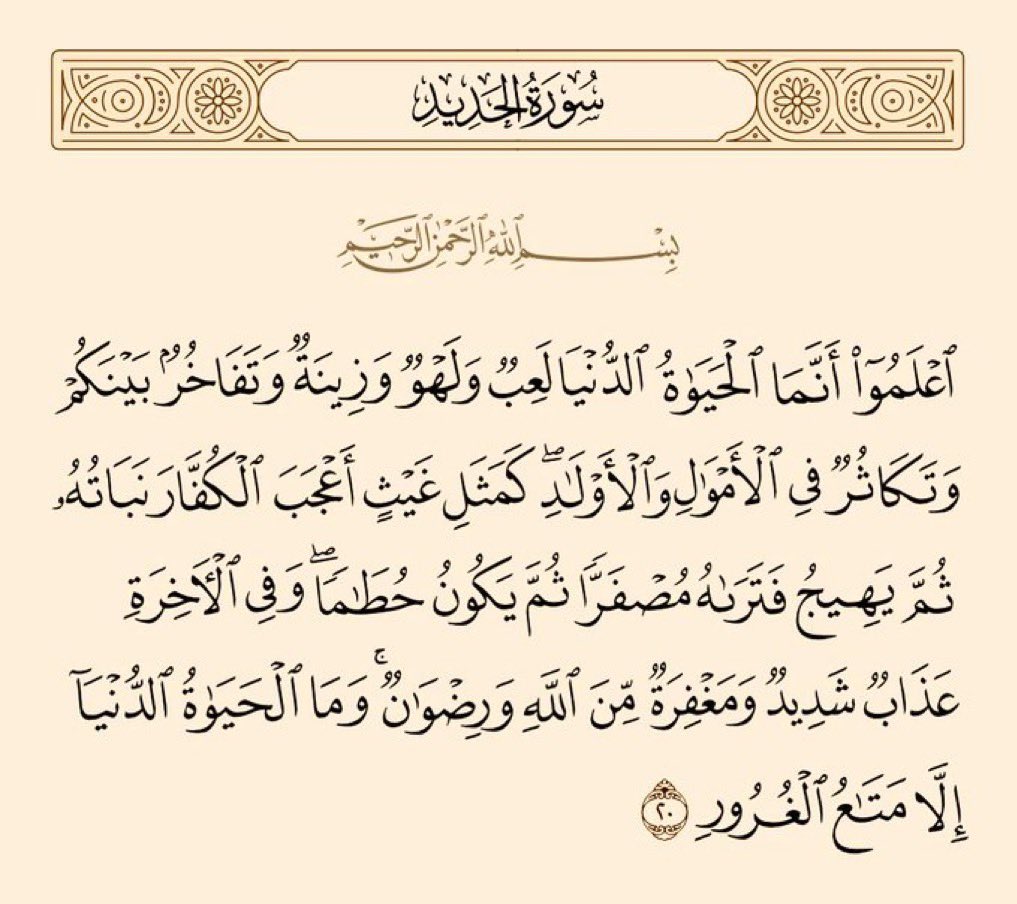 سُورَةُ الحَدِيدِ
بِسْمِ ٱللَّهِ ٱلرَّحْمَٰنِ ٱلرَّحِيمِ
ٱعْلَمُوٓا۟ أَنَّمَا ٱلْحَيَوٰةُ ٱلدُّنْيَا لَعِبٌ وَلَهْوٌ وَزِينَةٌ وَتَفَاخُرٌۢ بَيْنَكُمْ
وَتَكَاثُرٌ فِى ٱلْأَمْوَٰلِ وَٱلْأَوْلَٰدِ ۖ كَمَثَلِ غَيْثٍ أَعْجَبَ ٱلْكُفَّارَ نَبَاتُهُۥ
ثُمَّ يَهِيجُ فَتَرَىٰهُ مُصْفَرًّا ثُمَّ يَكُونُ حُطَٰمًا ۖ وَفِى ٱلْـَٔاخِرَةِ
عَذَابٌ شَدِيدٌ وَمَغْفِرَةٌ مِّنَ ٱللَّهِ وَرِضْوَٰنٌ ۚ وَمَا ٱلْحَيَوٰةُ ٱلدُّنْيَآ
إِلَّا مَتَٰعُ ٱلْغُرُورِ ٢٠